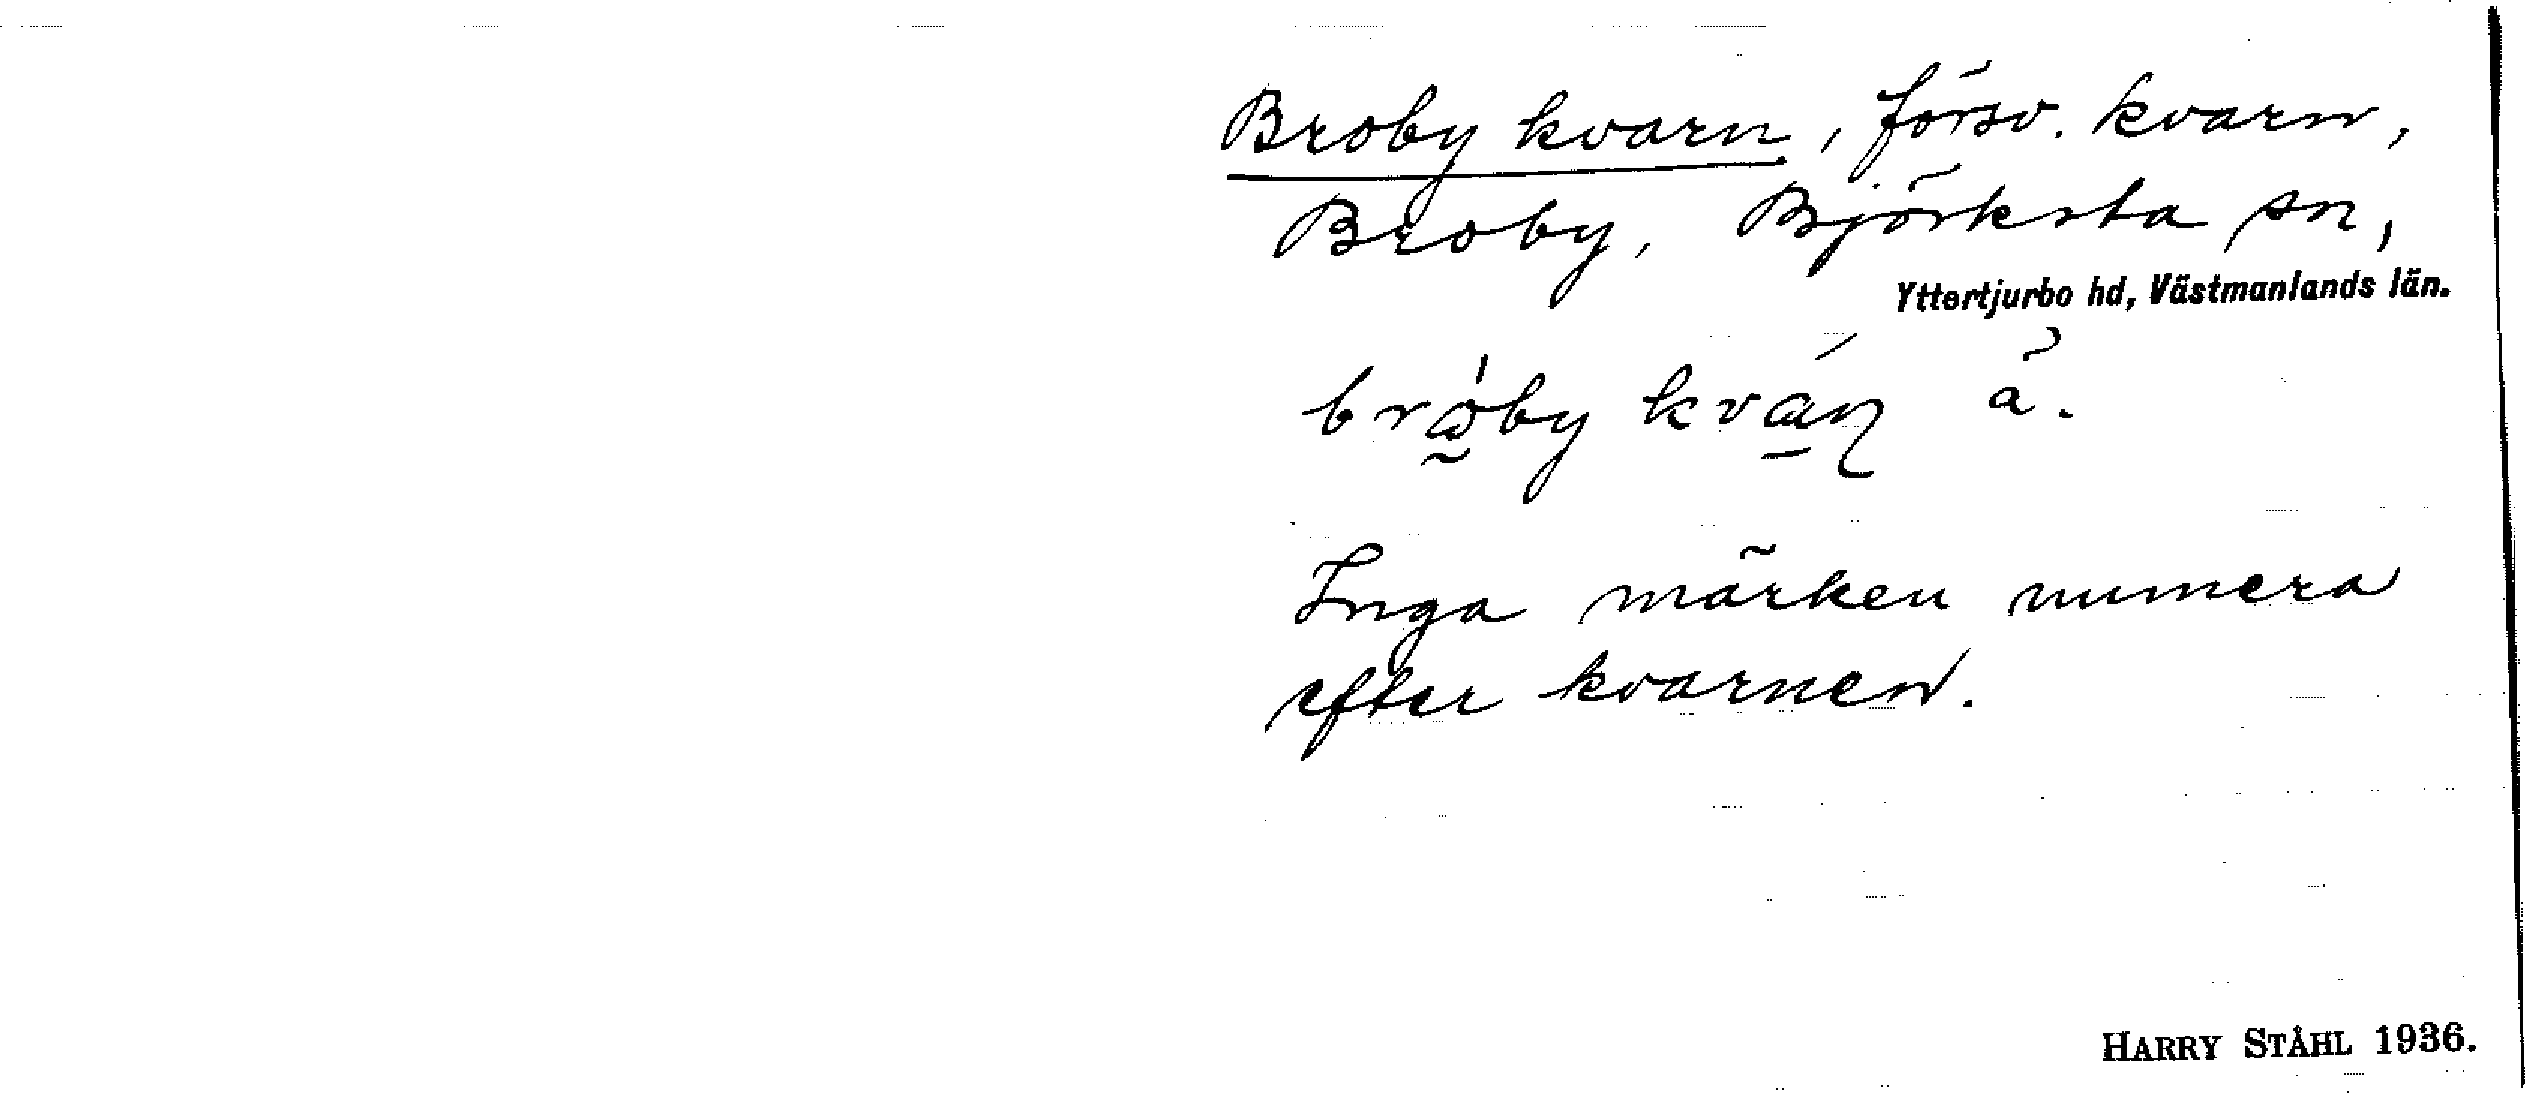 Broby kvarn, försv. kvarn,
Broby, Björksta sn,
Yttertjurbo hd, Västmanlands län.
Inga märken numera
efter kvarnen.
HARRY STÅHL 1936.